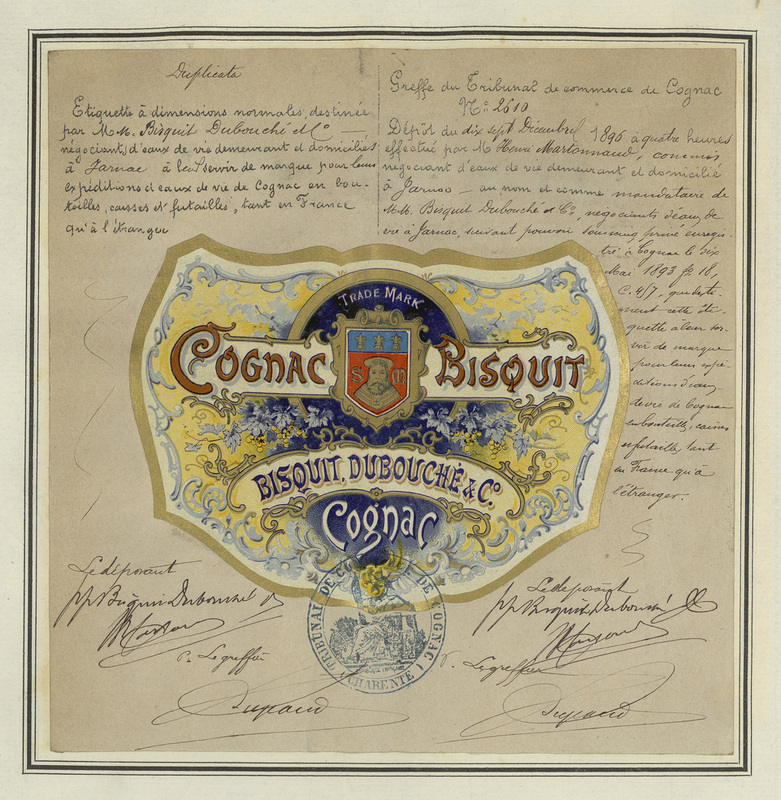 Duplicata
Etiquette à dimensions normales, destinée
par M.M. Bisquit Dubouché et Co
négociants d'eaux de vie demeurant et domiciliés
à Jarnac à leur servir de marque pour leurs
expéditions d'eaux de vie de Cognac en bou-
teilles, caisses et futailles, tant en France
qu'à l'étranger
Greffe du Tribunal de commerce de Cognac
No: 2610
Dépôt du dix sept Décembre 1896 à quatre heures
effectué par Mr Henri Martonnaud, commis
négociant d'eaux de vie demeurant et domicilié
à Jarnac au nom et comme mandataire de
M.M. Bisquit Dubouché et Co, négociants d'eaux de
vie à Jarnac, suivant pouvoir sous seing privé enregis-
tré à Cognac le six
Mai 1893 fo 18,
C. 4/7, que
cette éti-
quette à leur ser-
vir de marque
pour leurs expé-
ditions d'eaux
de vie de Cognac
en bouteilles, caisses
et futailles, tant
en France qu'à
l'étranger.
TRADE MARK
COGNAC BISQUIT
S M
BISQUIT, DUBOUCHÉ & Co.
Cognac
TRIBUNAL DE COMMERCE DE COGNAC
(CHARENTE)
Le déposant
pp Bisquit Dubouché
P. Le greffier
Le déposant
pp Bisquit Dubouché
P. Le greffier